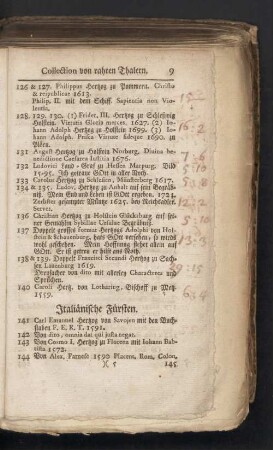 Collection von rahren Thalern. 9
126 & 127. Philippus Hertzog zu Pommern. Christo
& reipublicæ 1613.
Philip. II. mit dem Schiff. Sapientia non Vio-
lentia.
128. 129. 130. (1) Frider. III. Hertzog zu Schleswig
Holstein. Virtutis Gloria merces. 1627. (2) Io-
hann Adolph Hertzog zu Holstein 1699. (3) Io-
hann Adolph. Prisca Virtute fideque 1690. zu
Plöen.
131 August Hertzog zu Holstein Norburg. Divina be-
nedictione Cæsarea Iustitia 1676.
132 Ludovici Land-Graf zu Hessen Marpurg. Bild
15-95. Ich getraw GOtt in aller Noth.
133 Carolus Hertzog zu Schlesien, Münsterberg 1617.
134 & 135. Hertzog zu Anhalt auf sein Begräb-
niß. Mein End und Leben ist GOtt ergeben. 172
Zerbster gezwitzter Müntze 1625. bey Reichthaler.
Server.
136 Christian Hertzog zu Holstein Glücksburg auf sei-
ner Gemahlin Sybillæ Ursulæ Begräbniß.
137 Doppelt grosser former Hertzogs Adolphi von Hol-
stein & Schauenburg, hats GOtt versehen, so wirds
wohl geschehen. Mein Hoffnung stehet allein auf
GOtt. Er ist getreu er hilft aus Noth.
138 & 139. Doppelt Francisci Secundi Hertzog zu Sach-
sen Lauenburg 1619.
Dreyfacher von dito mit allerley Characteren und
Sprüchen.
140 Caroli Hertz. von Lothring. Bischoff zu Metz.
1559.
Italiänische Fürsten.
141 Carl Emanuel Hertzog von Savojen mit den Buch-
staben F. E. R. T. 1591.
142 Von dito, omnia dat qui justa negat.
143 Von Cosmo I. Hertzog zu Florentz mit Iohann Bab-
tista 1572.
144 Von Alex. Farnese 1590 Placent. Rom. Colon.
)( 5 145